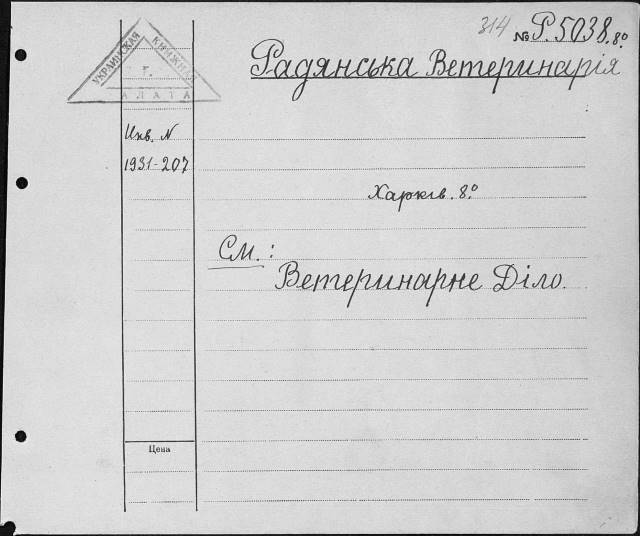 314 № Р.5038.8º
УКРАИНСКАЯ КНИЖНАЯ
ПАЛАТА
Радянська Ветеринарія
Инв. N
1931-207
Харків. 8º
См.:
Ветеринарне Діло.
Цена